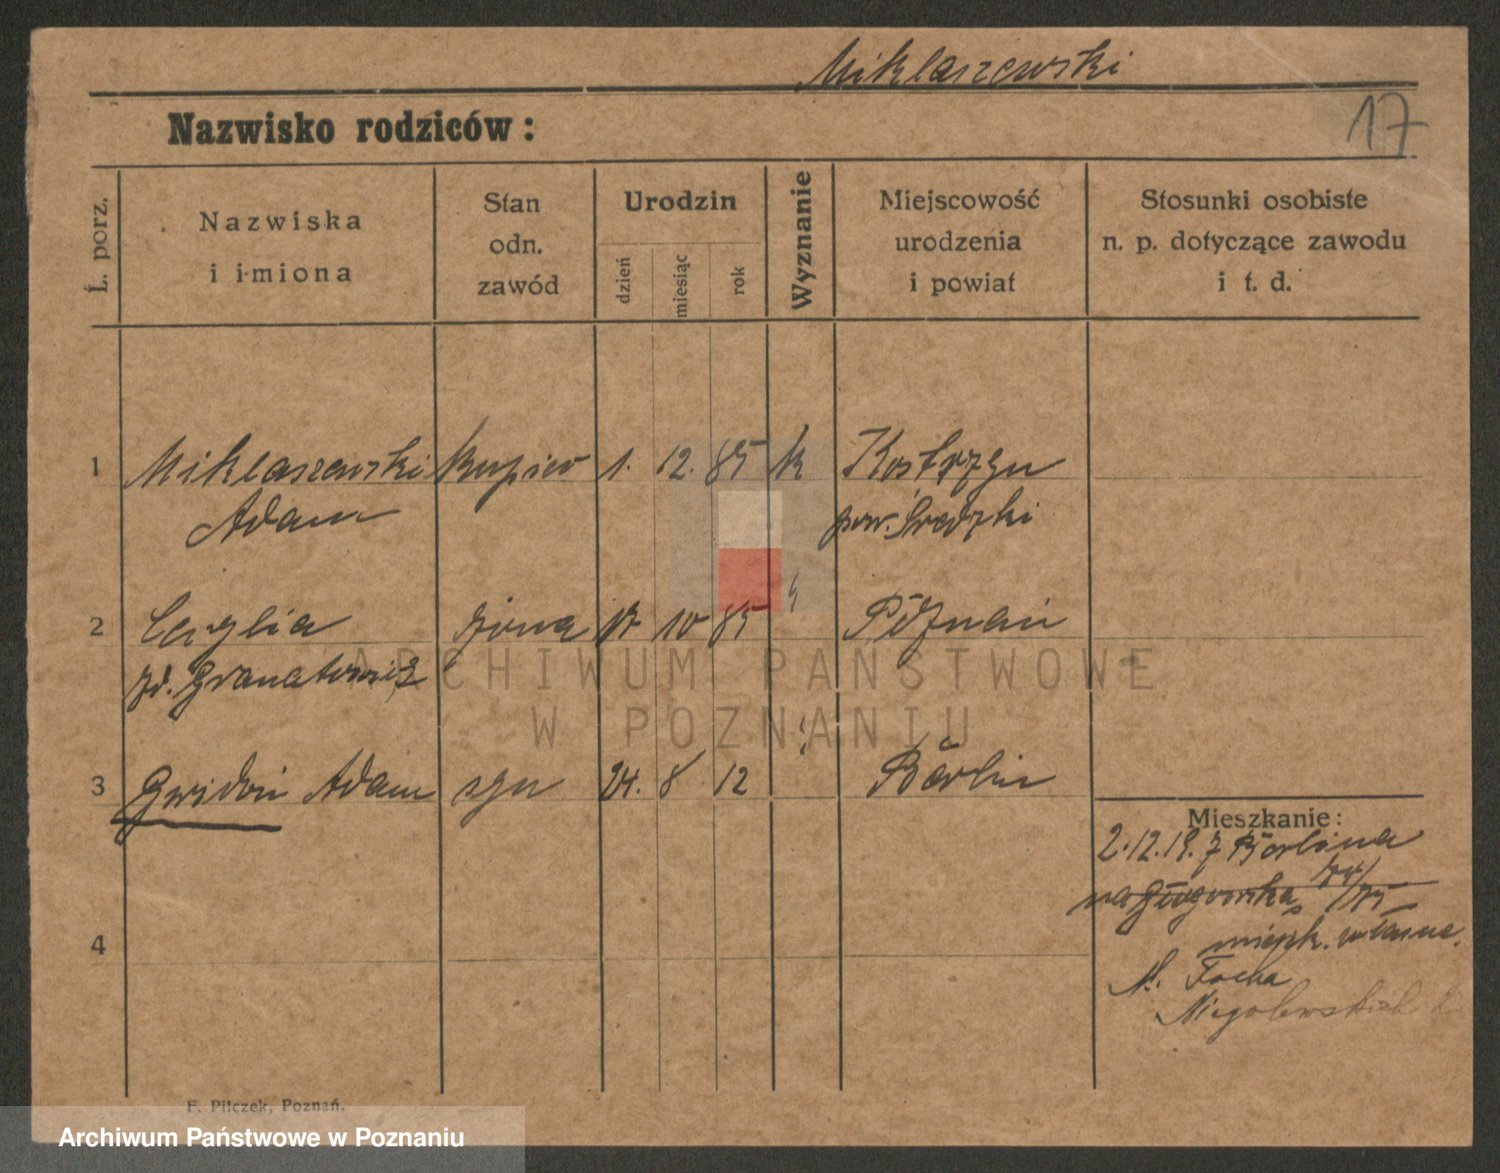 Miklaszewski
17
Nazwisko rodziców:
L. porz.
Nazwiska
i imiona
Stan
odn.
zawód
Urodzin
dzień
miesiąc
rok
Wyznanie
Miejscowość
urodzenia
i powiat
Stosunki osobiste
n. p. dotyczące zawodu
i t. d.
1 Miklaszewski kupiec 1. 12. 85 k Kostrzyn
Adam pow. Średzki
2 Cecylia żona 10 85 " Poznań
zd. Granatowicz
3 Gwidon Adam syn 24. 8 12 " Berlin
Mieszkanie:
2.12.19. z Berlina
74/75
mieszk. własne.
M. Focha
Niegolewskich
4
F. Pilczek, Poznań.
ARCHIWUM PAŃSTWOWE
W POZNANIU
Archiwum Państwowe w Poznaniu